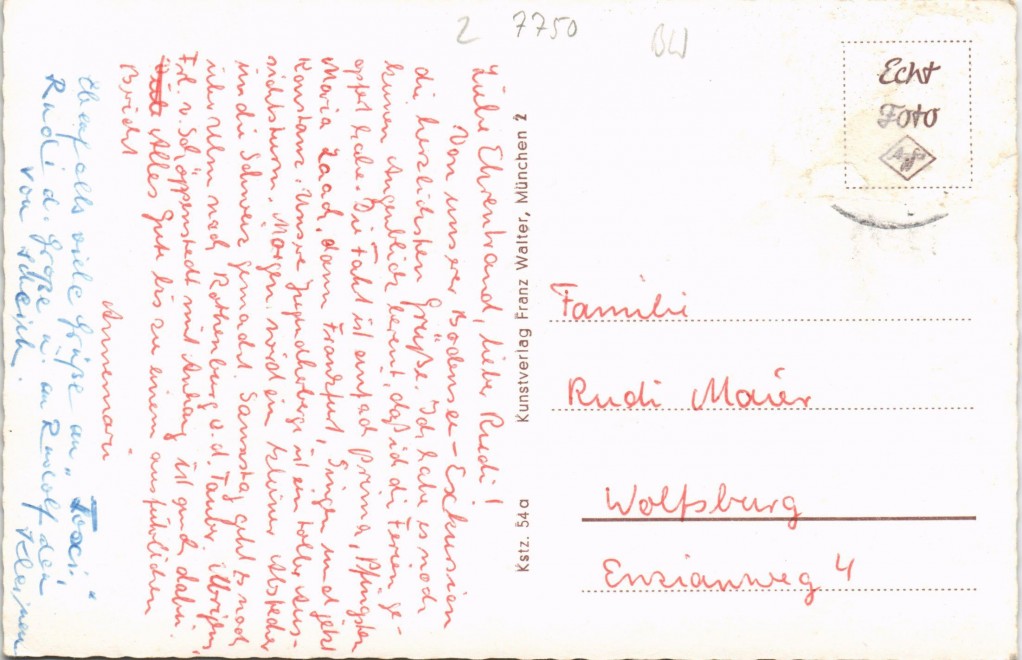 2 7750
BW
Echt
Foto
Agfa
Liebe Ehrentraud, lieber Rudi!
Von unserer Bodensee-Exkursion
die herzlichsten Grüße. Ich habe es noch
keinen Augenblick bereut, daß ich die Ferien ge-
oppt habe. Die Fahrt ist einfach prima, Pfingsten
Maria Laach, dann Frankfurt, Singen und jetzt
Konstanz. Unsere Jugendherberge ist ein toller Aus-
sichtsturm. Morgen wird ein kleiner Abstecher
in die Schweiz gemacht. Samstag geht es nach
über Ulm nach Rothenburg o. d. Tauber. Übrigens,
Frl. v. Schöppenstedt mit Anhang ist auch dabei.
Alles Gute bis zu einem ausführlichen
Bericht
Annemarie
Ebenfalls viele Grüße an
Rudi d. Große u. an Rudolf den
Kleinen
von
Kstz. 54a Kunstverlag Franz Walter, München 2
Familie
Rudi Maier
Wolfsburg
Enzianweg 4